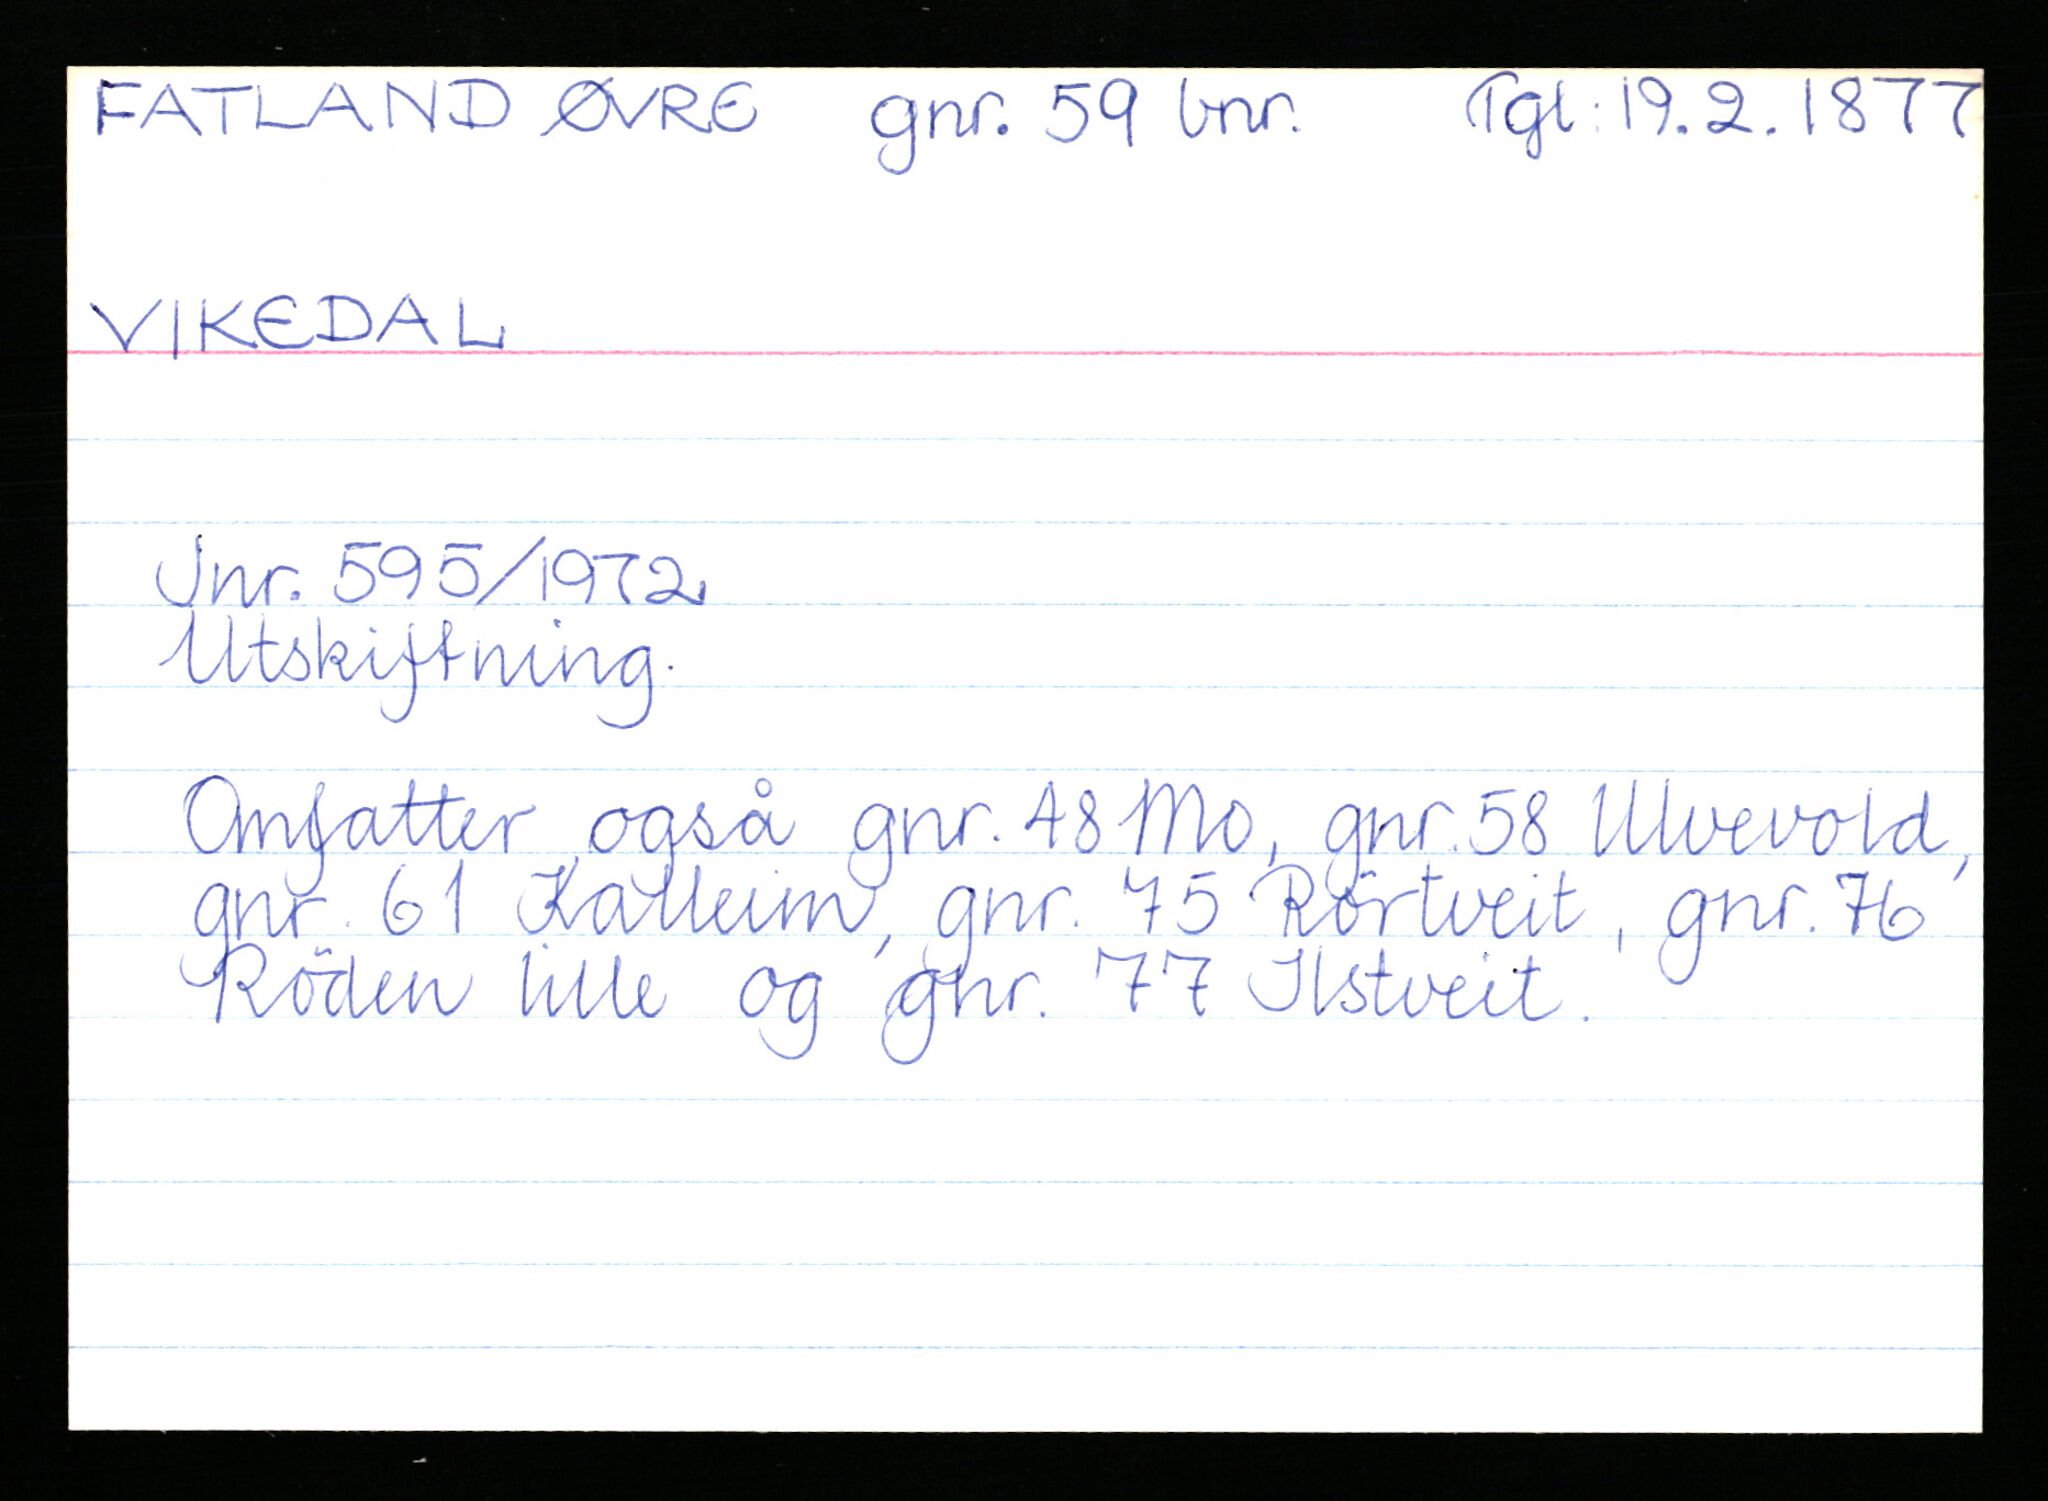 FATLAND ØVRE gnr. 59 bnr. Tgl: 19.2.1877
VIKEDAL
Jnr. 595/1972
Utskiftning.
Omfatter også gnr. 48 Mo, gnr. 58 Ulvevold,
gnr. 61 Kalleim, gnr. 75 Rörtveit, gnr. 76
Röden lille og gnr. 77 Ilstveit.